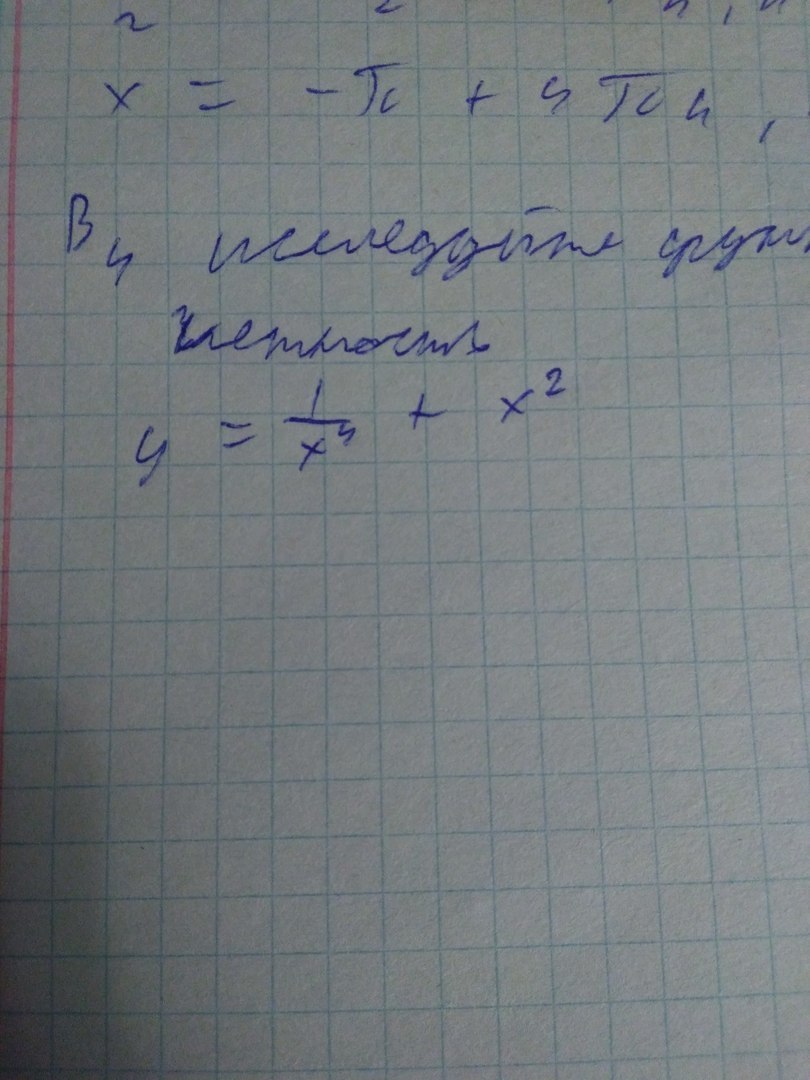 2 2 n, n
x = -π + 4πn,
В4 исследуйте функ
четность
y = 1/x^4 + x^2